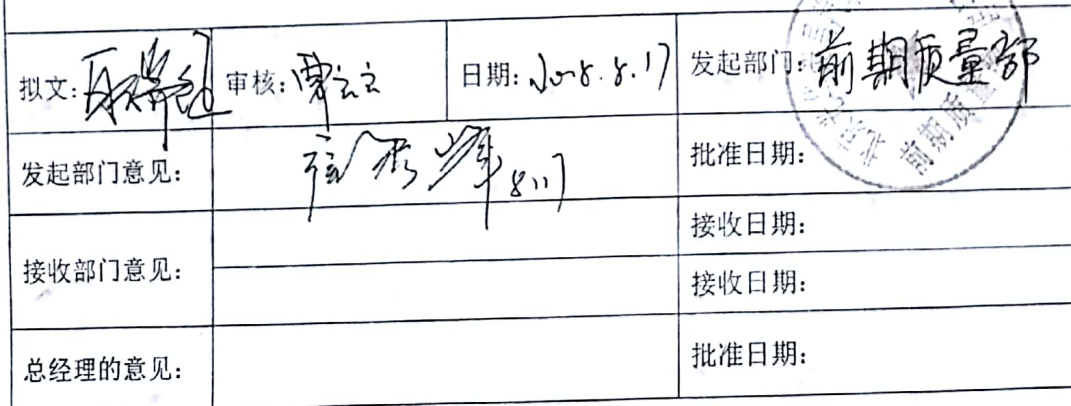 拟文: 审核: 日期:2018.8.17 发起部门:前期质量部
发起部门意见: 8.17 批准日期:
接收部门意见: 接收日期:
接收日期:
总经理的意见: 批准日期:
北京
前期质量